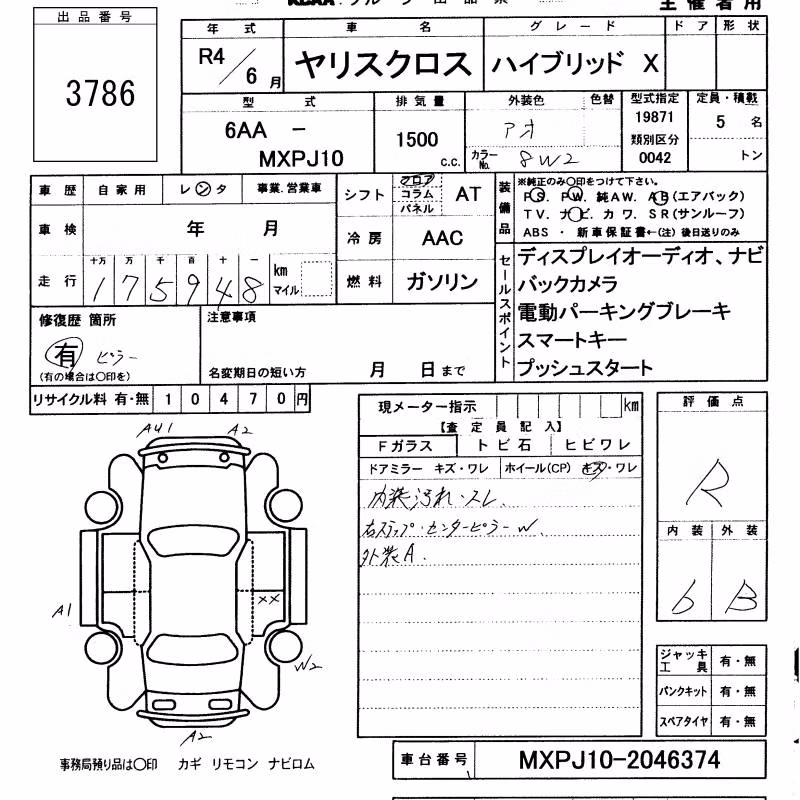 出品番号
3786
主催者用
年式 車名 グレード ドア 形状
R4/6月 ヤリスクロス ハイブリッド X
型式 排気量 外装色 色替 型式指定 定員・積載
6AA - MXPJ10 1500 c.c. アオ 19871 5名
カラーNo. 8W2 類別区分 0042 トン
車歴 自家用 レンタ 事業.営業車
シフト フロア コラム パネル AT
装備品 ※純正のみ○印をつけて下さい。
PS. PW. 純AW. AB(エアバック)
TV. ナビ. カワ. SR(サンルーフ)
ABS ・ 新車保証書←(注) 後日送りのみ
車検 年 月
冷房 AAC
走行 十万 万 千 百 十 一
175948 km マイル
燃料 ガソリン
セールスポイント
ディスプレイオーディオ、ナビ
バックカメラ
電動パーキングブレーキ
スマートキー
プッシュスタート
修復歴 箇所
有 ピラー
(有の場合は○印を)
注意事項
名変期日の短い方 月 日まで
リサイクル料 有・無 10470円
現メーター指示 km
【査定員記入】
Fガラス トビ石 ヒビワレ
ドアミラー キズ・ワレ ホイール(CP) キズ・ワレ
内装汚れ・スレ
右ステップ・センターピラーW.
外装A.
評価点
R
内装 外装
6 B
A41 A2
XX
A1
W2
A2
ジャッキ工具 有・無
パンクキット 有・無
スペアタイヤ 有・無
事務局預り品は○印 カギ リモコン ナビロム
車台番号 MXPJ10-2046374